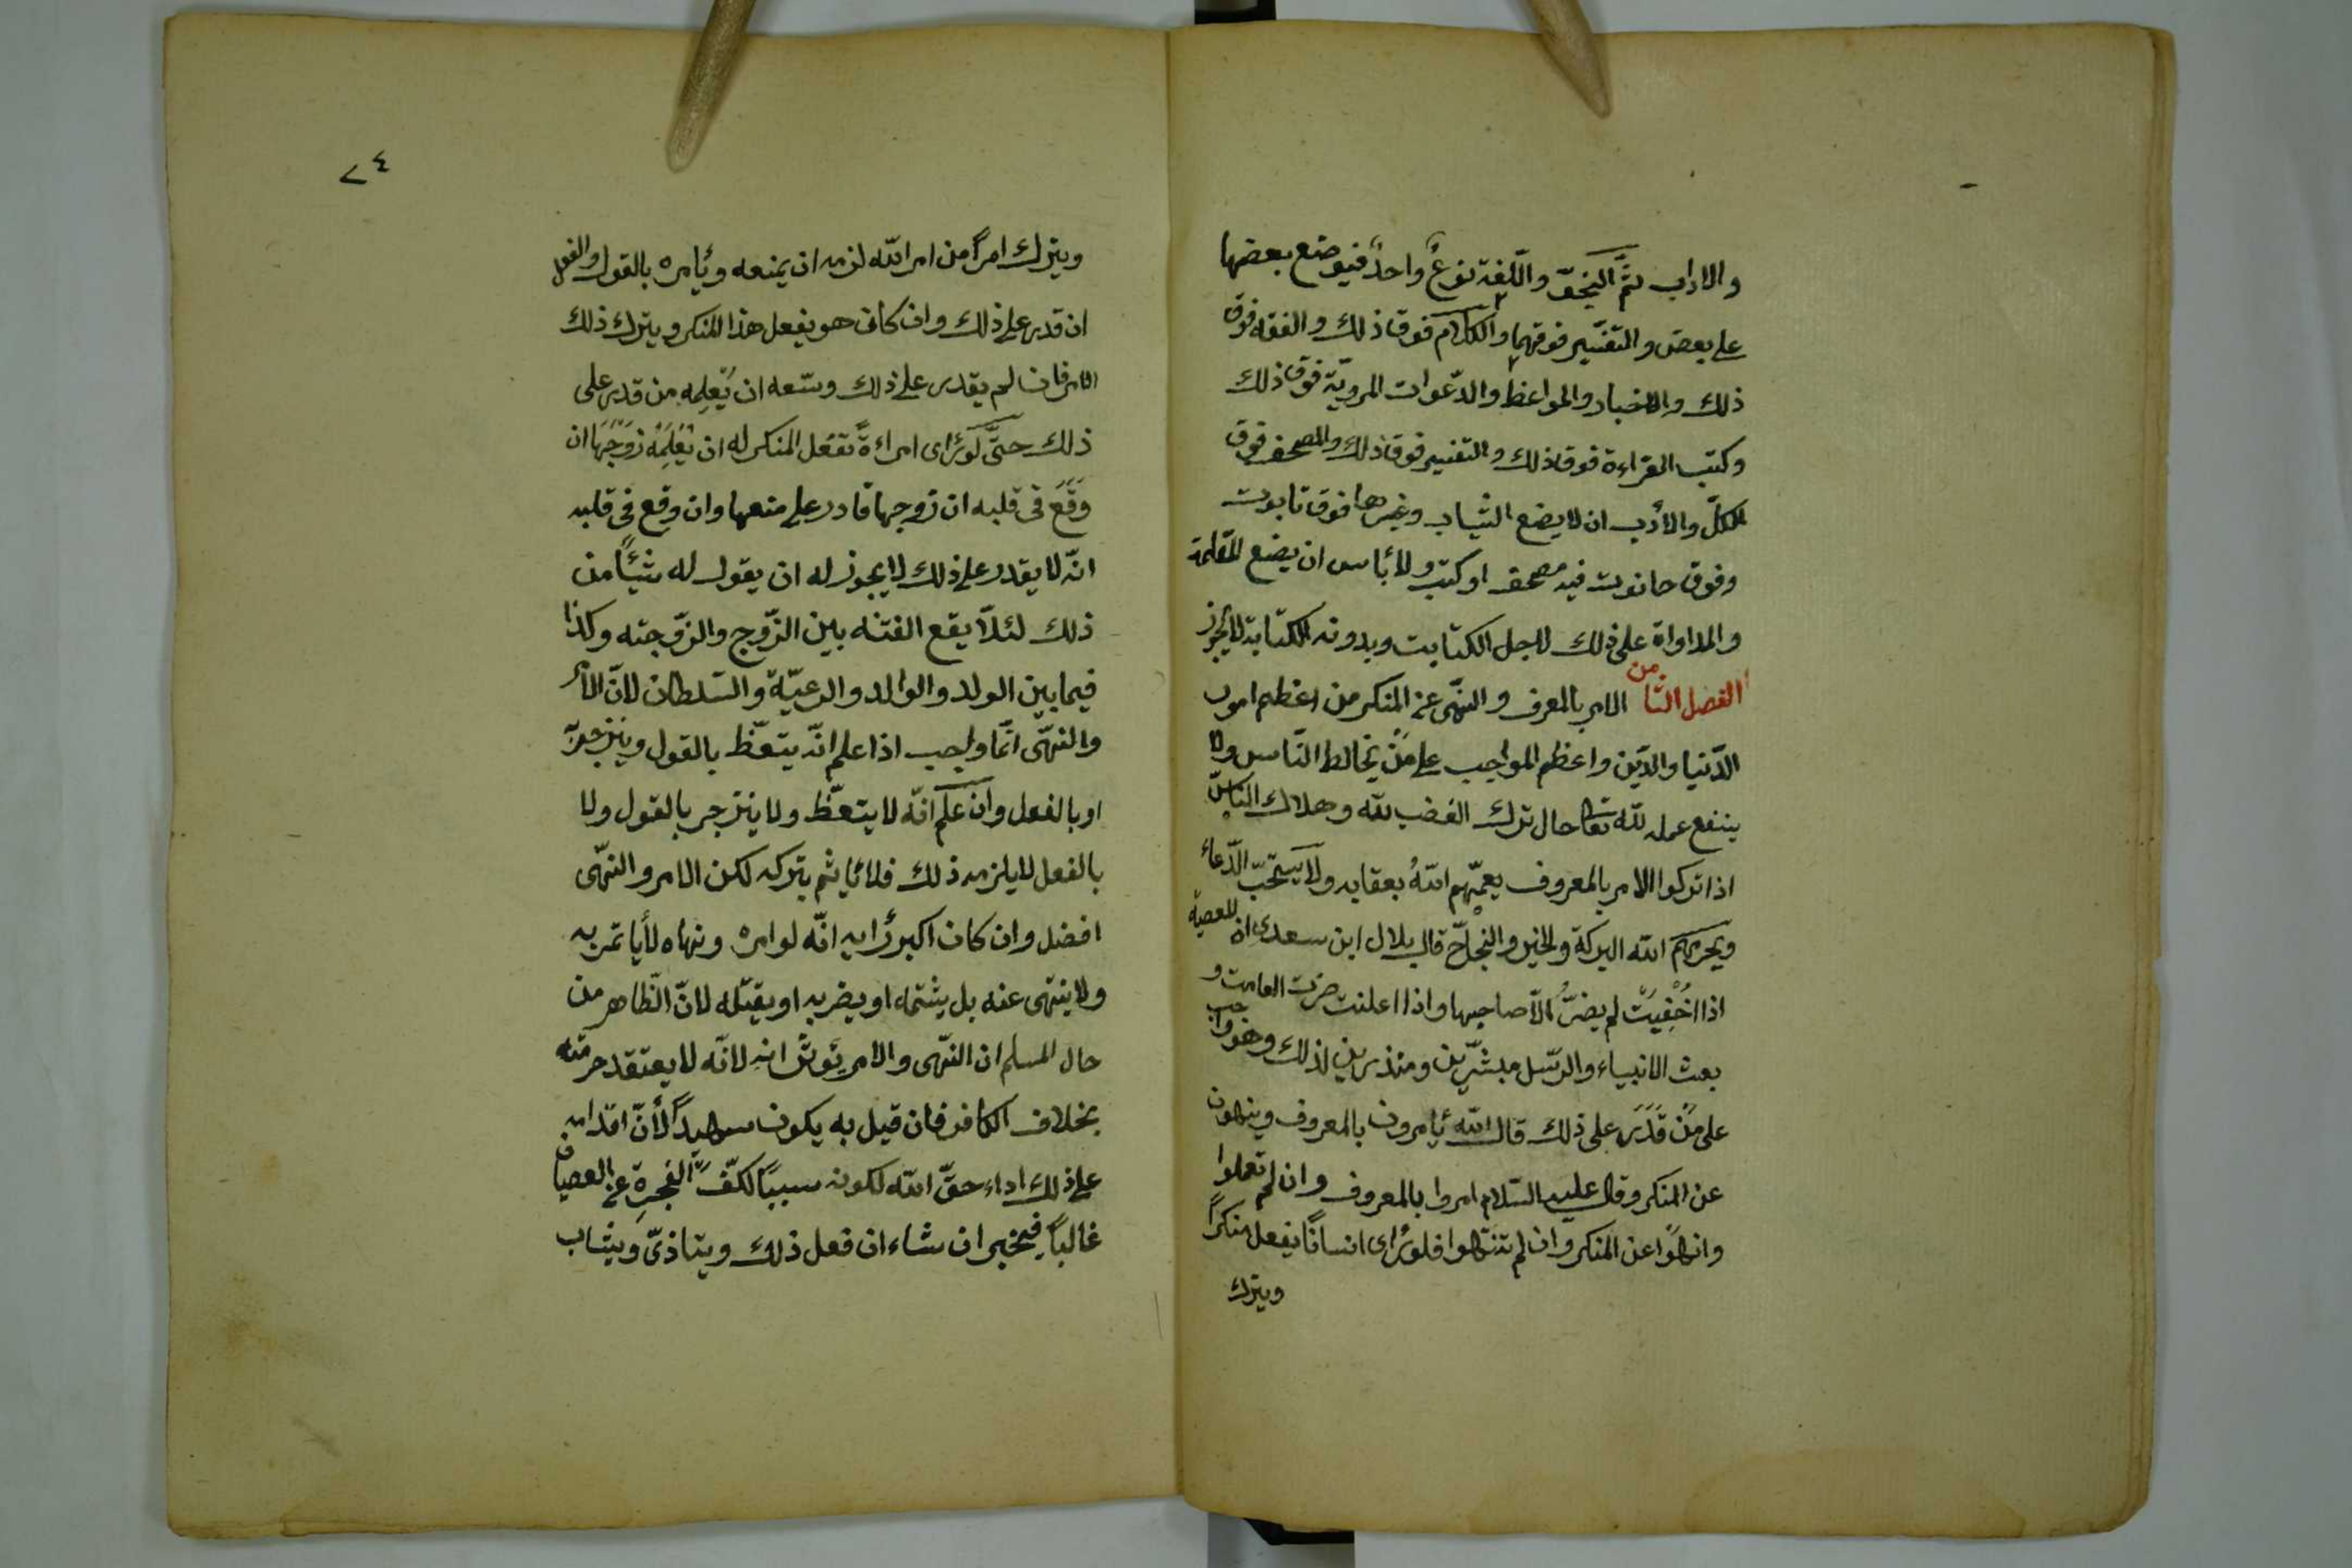 والاداب ثمّ النحو واللّغة نوعٌ واحدٌ فيوضع بعضها
على بعض والتفسير فوقهما والكلام فوق ذلك والفقه فوق
ذلك والاخبار والمواعظ والدّعوات المرويّة فوق ذلك
وكتب القراءة فوق ذلك والتفسير فوق ذلك والمصحف فوق
الكلّ والأدب ان لا يضع الثياب وغيرها فوق تابوت
وفوق حانوت فيه مصحف او كتب ولا بأس ان يضع المقلمة
والمداواة على ذلك لاجل الكتابت وبدونه الكتابة لا يجوز
الفصل الثامن الامر بالمعرف والنهّى عن المنكر من اعظم امور
الدّنيا والدّين واعظم المواجب على مَنْ يخالط النّاس ولا
ينفع عمله للّه تعالى حال ترك الغضب للّه وهلاك النّاس
اذا تركوا الامر بالمعروف يعمّهم اللّهُ بعقابه ولا يستحبّ الدّعاء
ويحرمهم اللّه البركة والخير والنجاح قال بلال ابن سعدى ان المعصية
اذا اخْفِيَتْ لم يضرّ الاّ صاحبها واذا اعلنت ضرت العامت و
بعث الانبياء والرّسل مبشّرين ومنذرين لذلك وهو واجب
على مَنْ قَدَرَ على ذلك قال اللّه يأمرون بالمعروف وينهون
عن المنكر وقال عليه السّلام امروا بالمعروف وان لم تعملوا
وانهَوْا عن المنكر وان لم تنتهوا فلو رأى انسانًا يفعل منكرًا
ويترك
٢٤
ويترك امرًا من امر اللّه لزمه ان يمنعه ويأمره بالقول والفعل
ان قدر على ذلك وان كان هو يفعل هذا المنكر ويترك ذلك
الامر فان لم يقدر على ذلك وسّعه ان يُعلِمه من قدر على
ذلك حتَّى لَوْ رأى امراءةً تفعل المنكر له ان يُعْلِمَهُ زَوْجَهَا ان
وَقَعَ فى قلبه ان زوجها قادر على منعها وان وقع فى قلبه
انّه لا يقدر على ذلك لا يجوز له ان يقول له شيئًا من
ذلك لئلاّ يقع الفتنه بين الزّوج والزّوجته وكذا
فيما بين الولد والوالد والرعيّة والسّلطان لانّ الأمر
والنهّى انّما واجب اذا علم انّه يتعّظ بالقول وينزجر
او بالفعل وان علم انّه لا يتعّظ ولا ينزجر بالقول ولا
بالفعل لا يلزمه ذلك فلا يأثم بتركه لكن الامر والنهّى
افضل وان كان اكبر رأيه انّه لو امره ونهاه لا يأتمر به
ولا ينتهى عنه بل يشتمه او يضربه او يقتله لانّ الظّاهر من
حال المسلم ان النهّى والامر يؤثّر انه لانّه لا يعتقد حرمته
بخلاف الكافر فان قيل به يكون شهيدًا لأنّ اقدامه
على ذلك اداء حقّ اللّه لكونه سببًا لكفّ الفجرة عن العصيان
غالبًا فيخير ان شاء ان فعل ذلك ويتاذىّ ويثاب